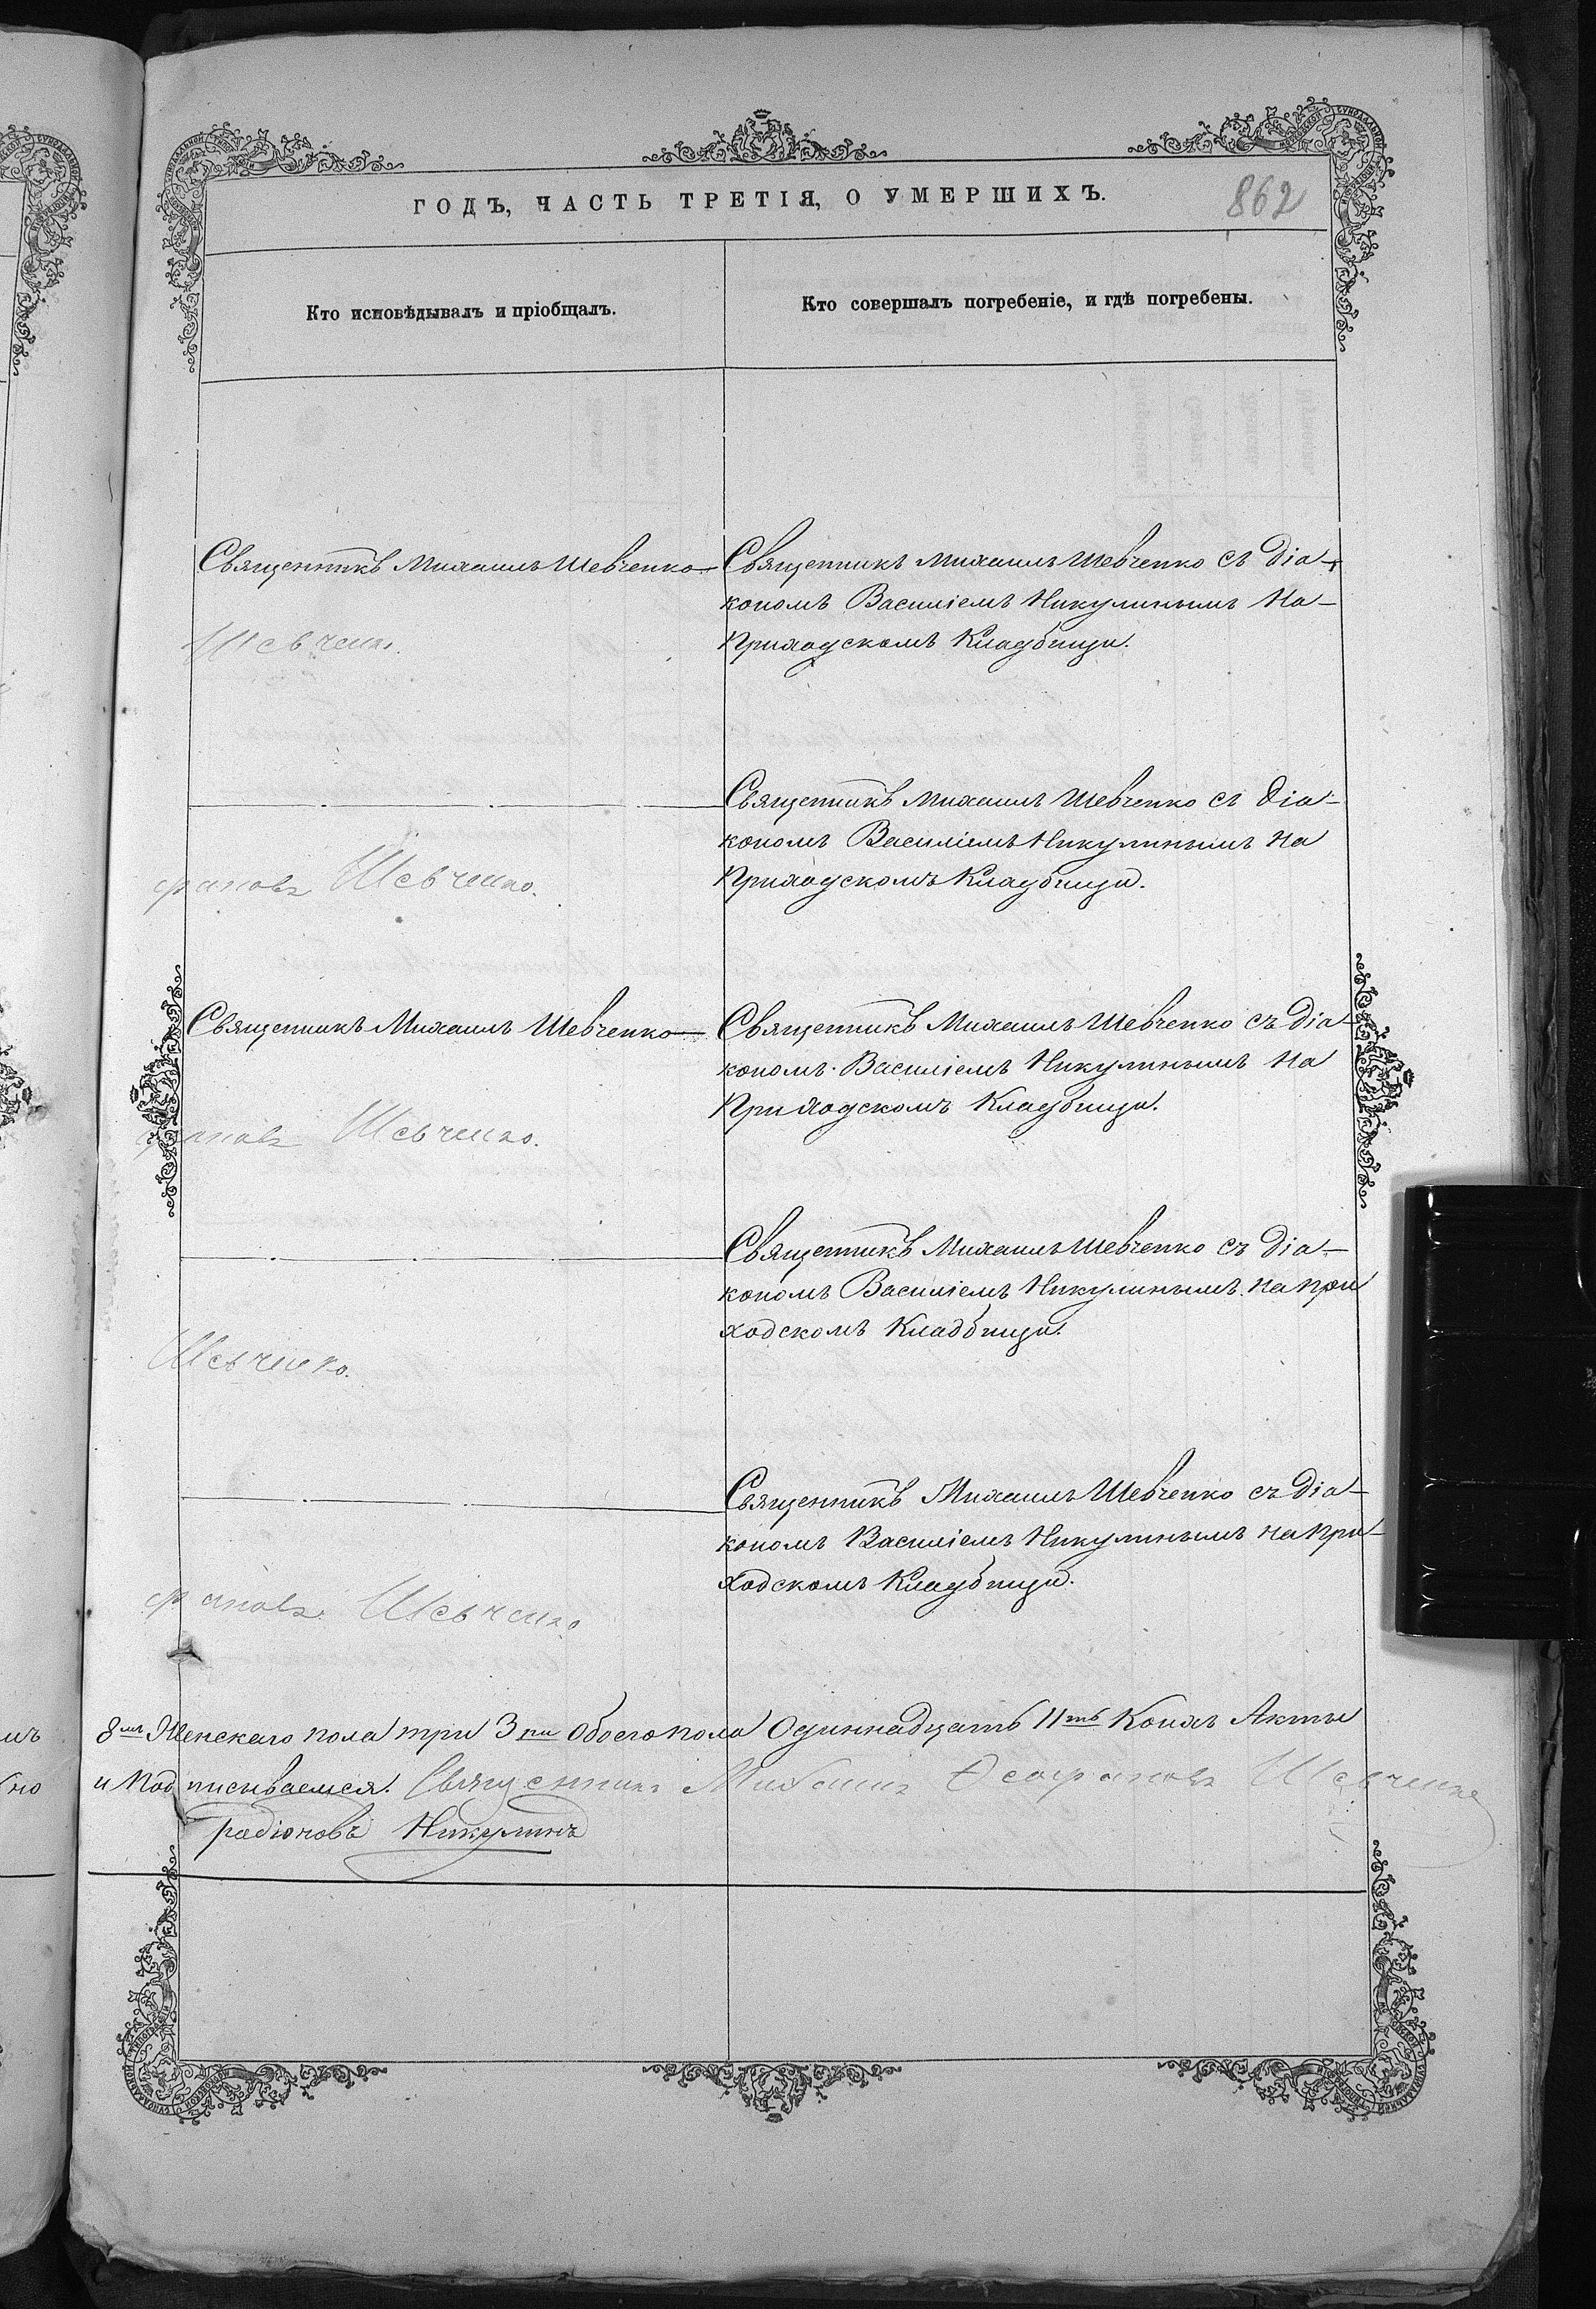 ГОДЪ, ЧАСТЬ ТРЕТІЯ, О УМЕРШИХЪ.
862
Кто исповѣдывалъ и пріобщалъ.
Кто совершалъ погребеніе, и гдѣ погребены.
Священникъ Михаилъ Шевченко
Священникъ Михаилъ Шевченко съ Діа-
кономъ Василіемъ Никулинымъ на
Приходскомъ Кладбищи.
Шевченко.
Священникъ Михаилъ Шевченко съ Діа-
кономъ Василіемъ Никулинымъ на
Приходскомъ Кладбищи.
фановъ Шевченко.
Священникъ Михаилъ Шевченко
Священникъ Михаилъ Шевченко съ Діа-
кономъ Василіемъ Никулинымъ на
Приходскомъ Кладбищи.
фановъ Шевченко.
Священникъ Михаилъ Шевченко съ Діа-
кономъ Василіемъ Никулинымъ на при
ходскомъ Кладбищи.
Шевченко.
Священникъ Михаилъ Шевченко съ Діа-
кономъ Василіемъ Никулинымъ на При-
ходскомъ Кладбищи.
фановъ Шевченко
8мъ Женскаго пола три 3ри Обоего пола Одиннадцать 11ть Коихъ Акты
и Подписываемся. Священникъ Михаилъ Ѳеофановъ Шевченко
Радіоновъ Никулинъ